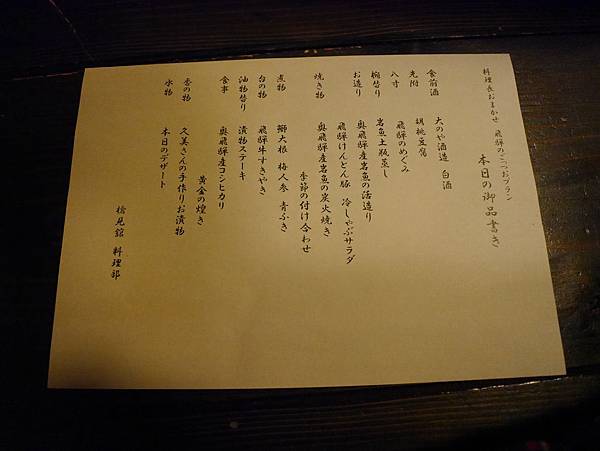 料理長おまかせ　飛騨のごっつおプラン
本日の御品書き
食前酒　大のや酒造　白酒
先附　胡桃豆腐
八寸　飛騨のめぐみ
椀替り　岩魚土瓶蒸し
お造り　奥飛騨産岩魚の活造り
飛騨けんとん豚　冷しゃぶサラダ
焼き物　奥飛騨産岩魚の炭火焼き
季節の付け合わせ
煮物　鰤大根　梅人参　青ふき
台の物　飛騨牛すきやき
油物替り　漬物ステーキ
食事　奥飛騨産コシヒカリ
黄金の煌き
香の物　久美さんの手作りお漬物
水物　本日のデザート
槍見舘　料理部